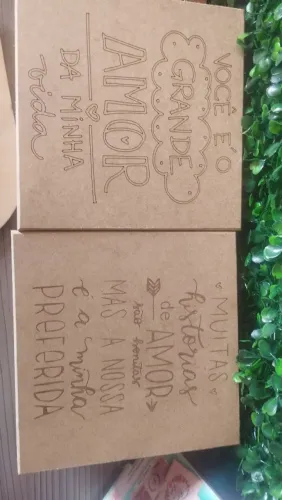 VOCÊ É O
GRANDE
AMOR
DA MINHA
vida
MUITAS
histórias
de AMOR
são bonitas
MAS A NOSSA
é a minha
PREFERIDA